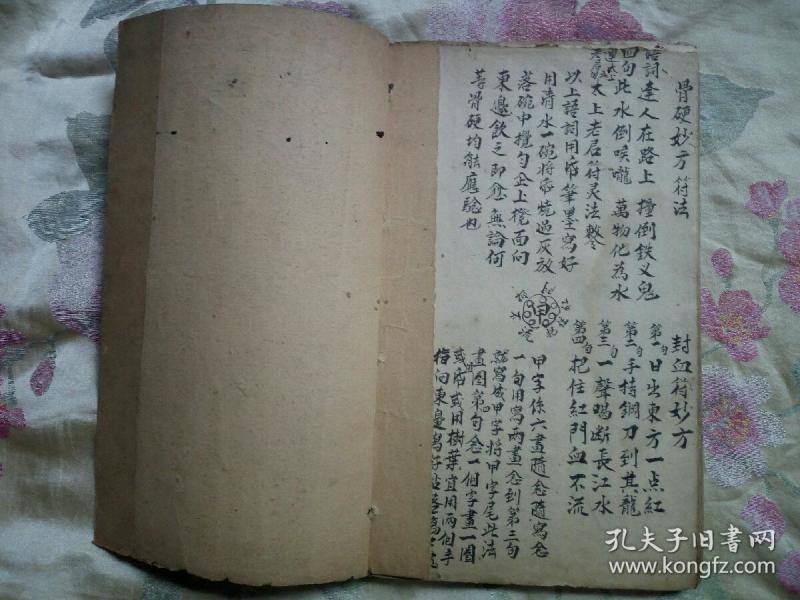 骨硬妙方符法
語詞 逢人在路上 撞倒鉄义鬼
四句 此水倒喉嚨 萬物化為水
太上老君符灵法敕令
以上語詞用帋筆墨寫好
用清水一碗將帋燒過灰放
落碗中攪勻企上櫈面向
東邊飲之即愈無論何
等骨硬均能應驗也
封血符妙方
第一句 日出東方一点紅
第二句 手持鋼刀到其龍
第三句 一聲喝断長江水
第四句 把住紅門血不流
甲
甲字係六畫隨念隨寫念
一句用寫兩畫念到第三句
就寫成甲字將甲字尾此法
畫圈第句念一個字畫一圈
或帋或用樹葉宜用兩個手
指向東邊寫好
孔夫子旧书网
www.kongfz.com